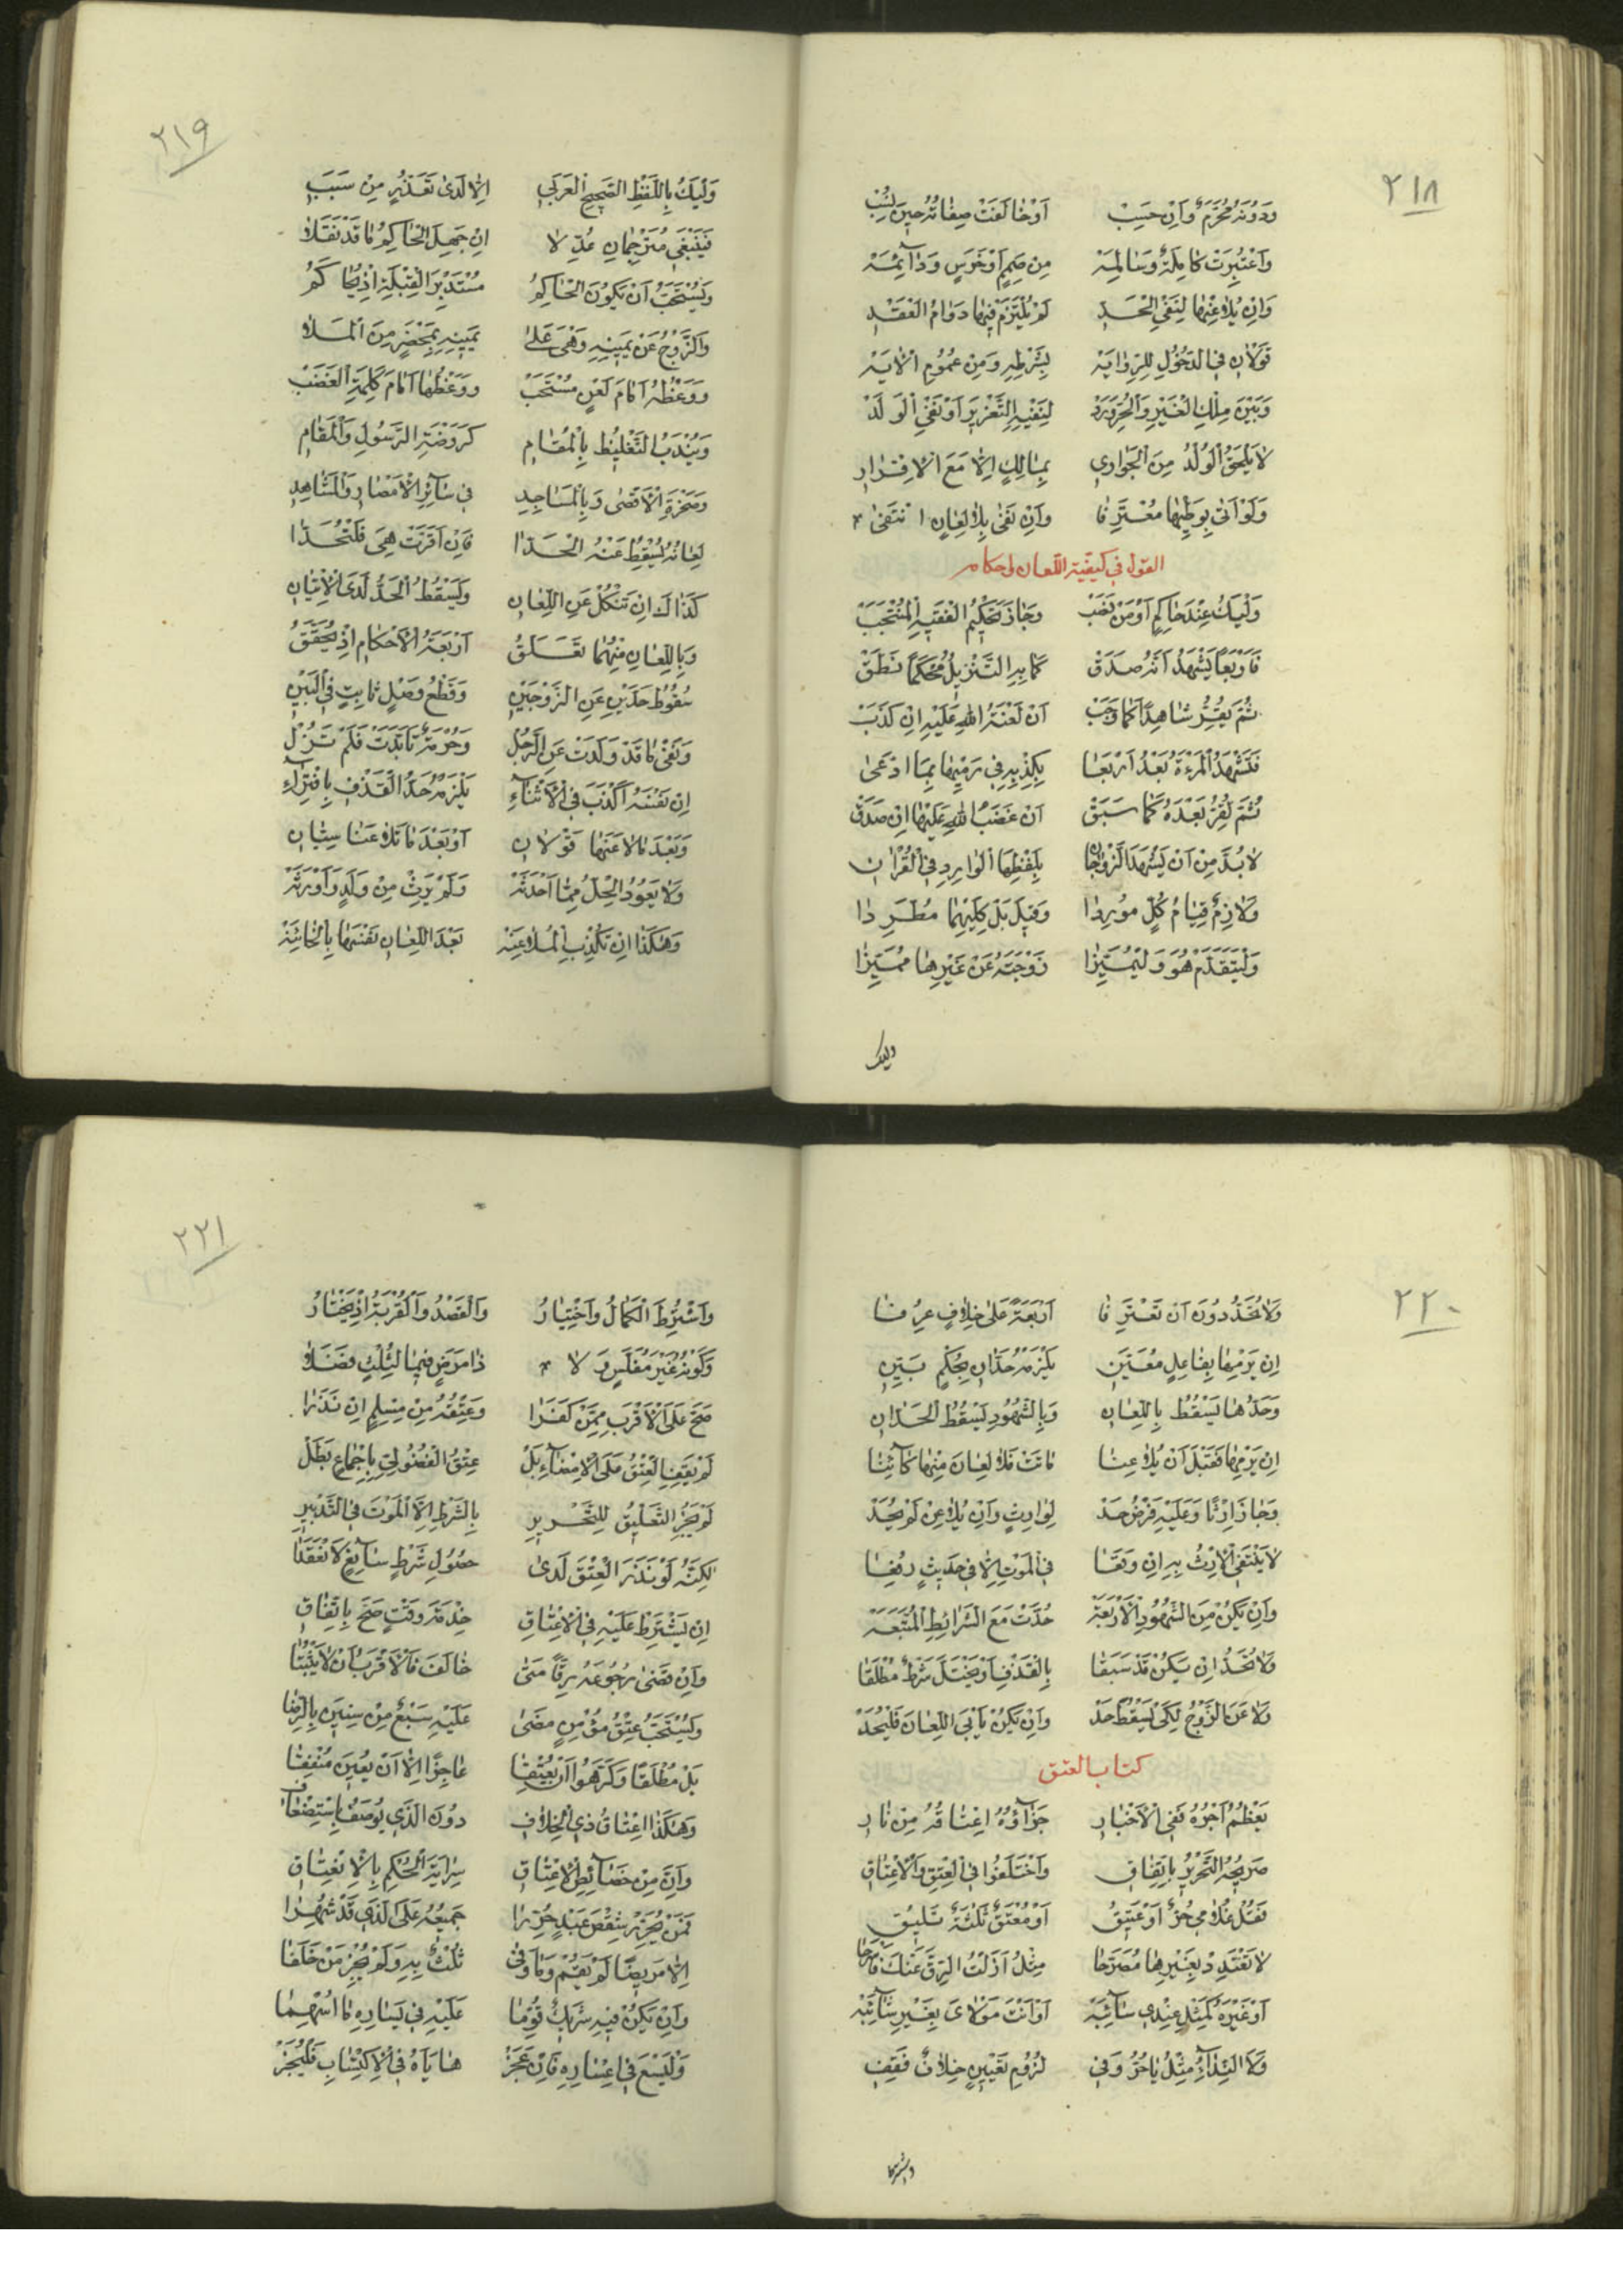 ٢١٨
وَدُونَهُ مُحَرَّمٌ وَاِنْ حَسِبْ اَوْ خٰالَفَتْ صِفٰاتُهُ حِينَ نُسِبْ
وَاعْتُبِرَتْ كٰامِلَةً وَسٰالِمَهْ مِن صَمَمٍ اَوْ خَرَسٍ وَدٰآئِمَهْ
وَاِنْ يُلٰاعِنْهٰا لِنَفْىِ الْحَدِّ لَمْ يُلْتَزَمْ فِيهٰا دَوٰامُ الْعَقْدِ
قَوْلٰانِ فِى الدُّخُولِ لِلرِّوٰايَهْ بِشَرْطِهِ وَمِنْ عُمُومِ الْاٰيَهْ
وَبَيْنَ مِلْكِ الْغَيْرِ وَالْحُرِّ وَرَدْ لِنَفْيِهِ التَّعْزِيرَ اَوْ نَفْىِ الْوَلَدْ
لٰا يَلْحَقُ الْوُلْدُ مِنَ الْجَوٰارِى بِمٰالِكٍ اِلّٰا مَعَ الْاِقْرٰارِ
وَلَوْ اَتىٰ بِوَطْيِهٰا مُعْتَرِفٰا وَاِنْ نَفىٰ بِلٰا لِعٰانٍ انْتَفىٰ
القول فى كيفية اللعان واحكامه
وَلْيَكُ عِنْدَ حٰاكِمٍ اَوْ مَنْ نَصَبْ وَجٰازَ تَحْكِيمُ الْفَقِيهِ الْمُنْتَجَبْ
فَاَرْبَعًا يَشْهَدُ اَنَّهُ صَدَقْ كَمٰا بِهِ التَّنْزِيلُ مُحْكَمًا نَطَقْ
ثُمَّ يَقُرُّ شٰاهِدًا كَمٰا وَجَبْ اَنْ لَعْنَةُ اللهِ عَلَيْهِ اِنْ كَذَبْ
فَتَشْهَدُ الْمَرْءَةُ بَعْدُ اَرْبَعٰا بِكِذْبِهِ فِى رَمْيِهٰا بِمَا ادَّعىٰ
ثُمَّ تُقِرُّ بَعْدَهُ كَمٰا سَبَقْ اَنْ غَضَبُ اللهِ عَلَيْهٰا اِنْ صَدَقْ
لٰا بُدَّ مِنْ اَنْ يَشْهَدَ الزَّوْجٰانِ بِلَفْظِهَا الْوٰارِدِ فِى الْقُرْاٰنِ
وَلٰازِمٌ قِيٰامُ كُلٍّ مُورِدٰا وَقِيلَ بَلْ كِلَيْهِمٰا مُطَّرِدٰا
وَلْيَتَقَدَّمْ هُوَ وَلْيُمَيِّزٰا زَوْجَتَهُ عَنْ غَيْرِهٰا مُمَيِّزٰا
وليك
٢١٩
وَلْيَكُ بِاللَّفْظِ الصَّحِيحِ الْعَرَبِى اِلّٰا لَدىٰ تَعَذُّرٍ مِنْ سَبَبِ
فَيَنْبَغِى مُتَرْجِمٰانِ عُدِّلٰا اِنْ جَهِلَ الْحٰاكِمُ مٰا قَدْ نَقَلٰا
وَيُسْتَحَبُّ اَنْ يَكُونَ الْحٰاكِمُ مُسْتَدْبِرَ الْقِبْلَةِ اِذْ يُحٰاكَمُ
وَالزَّوْجُ عَنْ يَمِينِهِ وَهْىَ عَلىٰ يَمِينِهِ بِمَحْضَرٍ مِنَ الْمَلٰا
وَوَعْظُهُ اَمٰامَ لَعْنٍ مُسْتَحَبّْ وَوَعْظُهٰا اَمٰامَ كَلِمَةِ الْغَضَبْ
وَيُنْدَبُ التَّغْلِيظُ بِالْمُقٰامِ كَرَوْضَةِ الرَّسُولِ وَالْمَقٰامِ
وَصَخْرَةِ الْاَقْصٰى وَبِالْمَسٰاجِدِ فِى سٰآئِرِ الْاَمْصٰارِ وَالْمَشٰاهِدِ
لِعٰانُهُ يُسْقِطُ عَنْهُ الْحَدّٰا فَاِنْ اَقَرَّتْ هِىَ فَلْتُحَدّٰا
كَذٰاكَ اِنْ تَنْكُلْ عَنِ اللِّعٰانِ وَيَسْقُطُ الْحَدُّ لَدَى الْاِتْيٰانِ
وَبِاللِّعٰانِ مِنْهُمٰا تَعَلَّقُ اَرْبَعَةُ الْاَحْكٰامِ اِذْ يُحَقَّقُ
سُقُوطُ حَدَّيْنِ عَنِ الزَّوْجَيْنِ وَقَطْعُ وَصْلٍ ثٰابِتٍ فِى الْبَيْنِ
وَنَفْىُ مٰا قَدْ وَلَدَتْ عَنِ الرَّجُلْ وَحُرْمَةٌ تَاَبَّدَتْ فَلَمْ تَزُلْ
اِنْ نَفْسَهُ اَكْذَبَ فِى الْاَثْنٰآءِ يَلْزَمُهُ حَدُّ الْقَذْفِ بِافْتِرٰآءِ
وَبَعْدَ مٰا لٰاعَنَهٰا قَوْلٰانِ اَوْ بَعْدَ مٰا تَلٰاعَنٰا سِيّٰانِ
وَلٰا يَعُودُ الْحِلُّ مِمّٰا اَحْدَثَهْ وَلَمْ يَرِثْ مِنْ وَلَدٍ وَاَوْرَثَهْ
وَهٰكَذٰا اِنْ تَكْذِبِ الْمُلٰاعِنَهْ بَعْدَ اللِّعٰانِ نَفْسَهٰا بِالْخٰائِنَهْ
٢٢٠
وَلٰا تُحَدُّ دُونَ اَنْ تَعْتَرِفٰا اَرْبَعَةً عَلىٰ خِلٰافٍ عُرِفٰا
اِنْ يَرْمِهٰا بِفٰاعِلٍ مُعَيَّنِ يَلْزَمُهُ حَدّٰانِ بِحُكْمٍ بَيِّنِ
وَحَدُّهٰا يَسْقُطُ بِاللِّعٰانِ وَبِالشُّهُودِ يَسْقُطُ الْحَدّٰانِ
اِنْ يَرْمِهٰا فَقَبْلَ اَنْ يُلٰاعِنٰا مٰاتَتْ فَلٰا لِعٰانَ مِنْهٰا كٰآئِنٰا
وَجٰازَ اِرْثًا وَعَلَيْهِ فَرْضُ حَدّْ لِوٰارِثٍ وَاِنْ يُلٰاعِنْ لَمْ يُحَدّْ
لٰا يَنْتَفِى الْاِرْثُ بِهِ اِنْ وَقَعٰا فِى الْمَوْتِ اِلّٰا فِى حَدِيثٍ رُفِعٰا
وَاِنْ يَكُنْ مِنَ الشُّهُودِ الْاَرْبَعَهْ حُدَّتْ مَعَ الشَّرٰائِطِ الْمُتَّبَعَهْ
وَلٰا تُحَدُّ اِنْ يَكُنْ قَدْ سَبَقٰا بِالْقَذْفِ اَوْ يَخْتَلَّ شَرْطٌ مُطْلَقٰا
وَلٰاعَنَ الزَّوْجُ لِكَىْ يَسْقُطَ حَدّْ وَاِنْ يَكُنْ يَاْبَى اللِّعٰانَ فَلْيُحَدّْ
كتاب العتق
يَعْظُمُ اَجْرُهُ فَفِى الْاَخْبٰارِ جَزٰآؤُهُ اِعْتٰاقُهُ مِنْ نٰارِ
صَرِيحُهُ التَّحْرِيرُ بِاتِّفٰاقِ وَاخْتَلَفُوا فِى الْعِتْقِ وَالْاِعْتٰاقِ
فَقُلْ غُلٰامِى حُرٌّ اَوْ عَتِيقُ اَوْ مُعْتَقٌ ثَلٰثَةٌ تَلِيقُ
لٰا تَعْتَدِدْ بِغَيْرِهٰا مُصَرِّحٰا مِثْلُ اَزَلْتُ الرِّقَّ عَنْكَ
اَوْ غَيْرَهُ كَمِثْلِ عِنْدِى سٰآئِبَهْ اَوْ اَنْتَ مَوْلٰاىَ بِغَيْرِ شٰآئِبَهْ
وَلَا النِّدٰآءُ مِثْلُ يٰا حُرُّ وَفِى لُزُومِ تَعْيِينٍ خِلٰافٌ فَقِفِ
واشترط
٢٢١
وَاشْتُرِطَ الْكَمٰالُ وَاخْتِيٰارُ وَالْقَصْدُ وَالْقُرْبَةُ اِذْ يَخْتٰارُ
وَكَوْنُهُ غَيْرَ مُفَلَّسٍ وَلٰا ذٰا مَرَضٍ فِيمٰا لِثُلْثٍ فَضَلٰا
صَحَّ عَلَى الْاَقْرَبِ مِمَّنْ كَفَرٰا وَعِتْقُهُ مِنْ مُسْلِمٍ اِنْ نَذَرٰا
لَمْ يَقِفِ الْعِتْقُ عَلَى الْاِمْضٰآءِ بَلْ عِتْقُ الْفُضُولِىِّ بِاِجْمٰاعٍ بَطَلْ
لَمْ يَجُزِ التَّعْلِيقُ لِلتَّحْرِيرِ بِالشَّرْطِ اِلَّا الْمَوْتَ فِى التَّدْبِيرِ
لٰكِنَّهُ لَوْ نَذَرَ الْعِتْقَ لَدىٰ حُصُولِ شَرْطٍ سٰآئِغٍ لَانْعَقَدٰا
اِنْ يَشْتَرِطْ عَلَيْهِ فِى الْاِعْتٰاقِ خِدْمَةَ وَقْتٍ صَحَّ بِاتِّفٰاقِ
وَاِنْ قَضىٰ رُجُوعَهُ رِقًّا مَتىٰ خٰالَفَ فَالْاَقْرَبُ اَنْ لٰا يَثْبُتٰا
وَيُسْتَحَبُّ عِتْقُ مُؤْمِنٍ مَضىٰ عَلَيْهِ سَبْعٌ مِنْ سِنِينَ بِالرِّضٰا
بَلْ مُطْلَقًا وَكَرِهُوا اَنْ يُعْتِقٰا عٰاجِزًا اِلّٰا اَنْ يُعِينَ مُنْفِقٰا
وَهٰكَذَا اعْتٰاقُ ذِى الْخِلٰافِ دُونَ الَّذِى يُوصَفُ بِاسْتِضْعٰافِ
وَاِنَّ مِنْ خَصٰآئِصِ الْاِعْتٰاقِ سِرٰايَةَ الْحُكْمِ بِالْاِنْعِتٰاقِ
فَمَنْ يُحَرِّرْ شِقْصَ عَبْدٍ حُرِّرٰا جَمِيعُهُ عَلَى الَّذِى قَدْ شُهِرٰا
اِلّٰا مَرِيضًا لَمْ يَقُمْ وَمٰا وَفىٰ ثُلْثٌ بِهِ وَلَمْ يُجِزْ مَنْ خَلَفٰا
وَاِنْ يَكُنْ فِيهِ شَرِيكٌ قُوِّمٰا عَلَيْهِ فِى يَسٰارِهِ مٰا اسْتُهِمٰا
وَلْيَسْعَ فِى اِعْسٰارِهِ فَاِنْ عَجَزْ هٰايٰاهُ فِى الْاِكْتِسٰابِ فَلْيُجَزْ